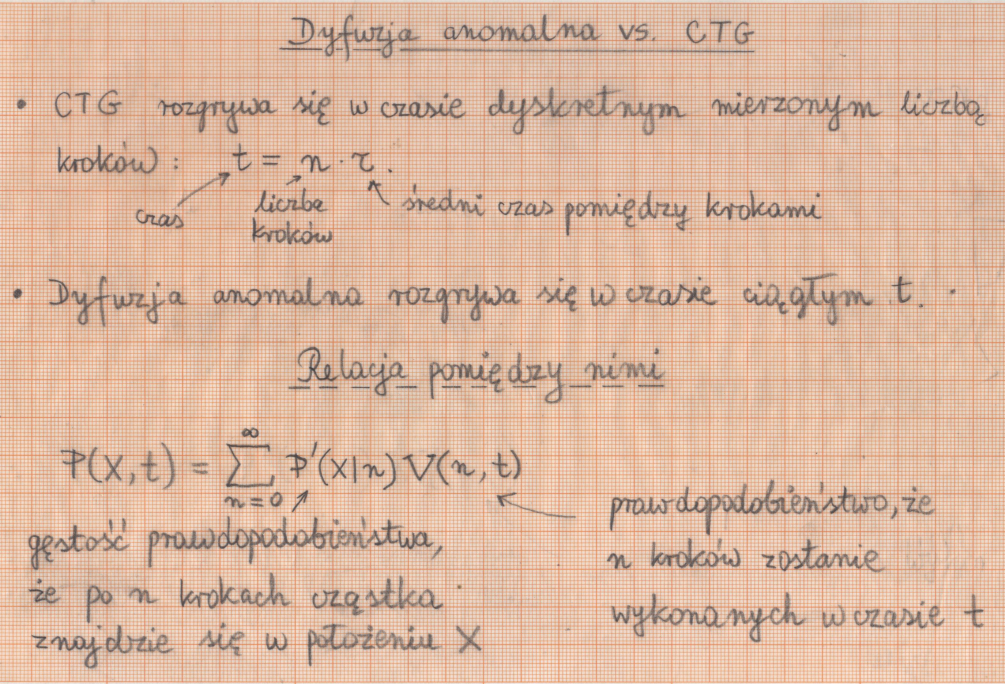 Dyfuzja anomalna vs. CTG
• CTG rozgrywa się w czasie dyskretnym mierzonym liczbą
kroków: t = n · τ.
czas
liczba
kroków
średni czas pomiędzy krokami
• Dyfuzja anomalna rozgrywa się w czasie ciągłym t.
Relacja pomiędzy nimi
P(X,t) = ∑_{n=0}^{∞} P'(X|n) V(n,t)
gęstość prawdopodobieństwa,
że po n krokach cząstka
znajdzie się w położeniu X
prawdopodobieństwo, że
n kroków zostanie
wykonanych w czasie t